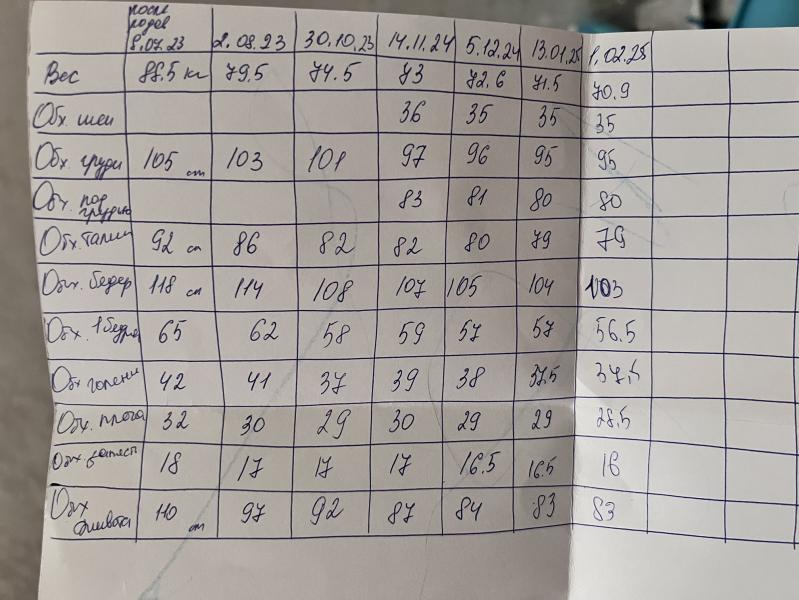 после родов 8.07.23 2.08.23 30.10.23 14.11.24 5.12.24 13.01.25 1.02.25
Вес 88.5 кг 79.5 74.5 73 72.6 71.5 70.9
Обх. шеи 36 35 35 35
Обх. груди 105 cm 103 101 97 96 95 95
Обх. под грудью 83 81 80 80
Обх. талии 92 см 86 82 82 80 79 79
Обх. бедер 118 см 114 108 107 105 104 103
Обх. 1 бедра 65 62 58 59 57 57 56.5
Обх голени 42 41 37 39 38 37.5 37,5
Обх. плеча 32 30 29 30 29 29 28.5
Обх запяст 18 17 17 17 16.5 16.5 16
Обх живота 110 cm 97 92 87 84 83 83